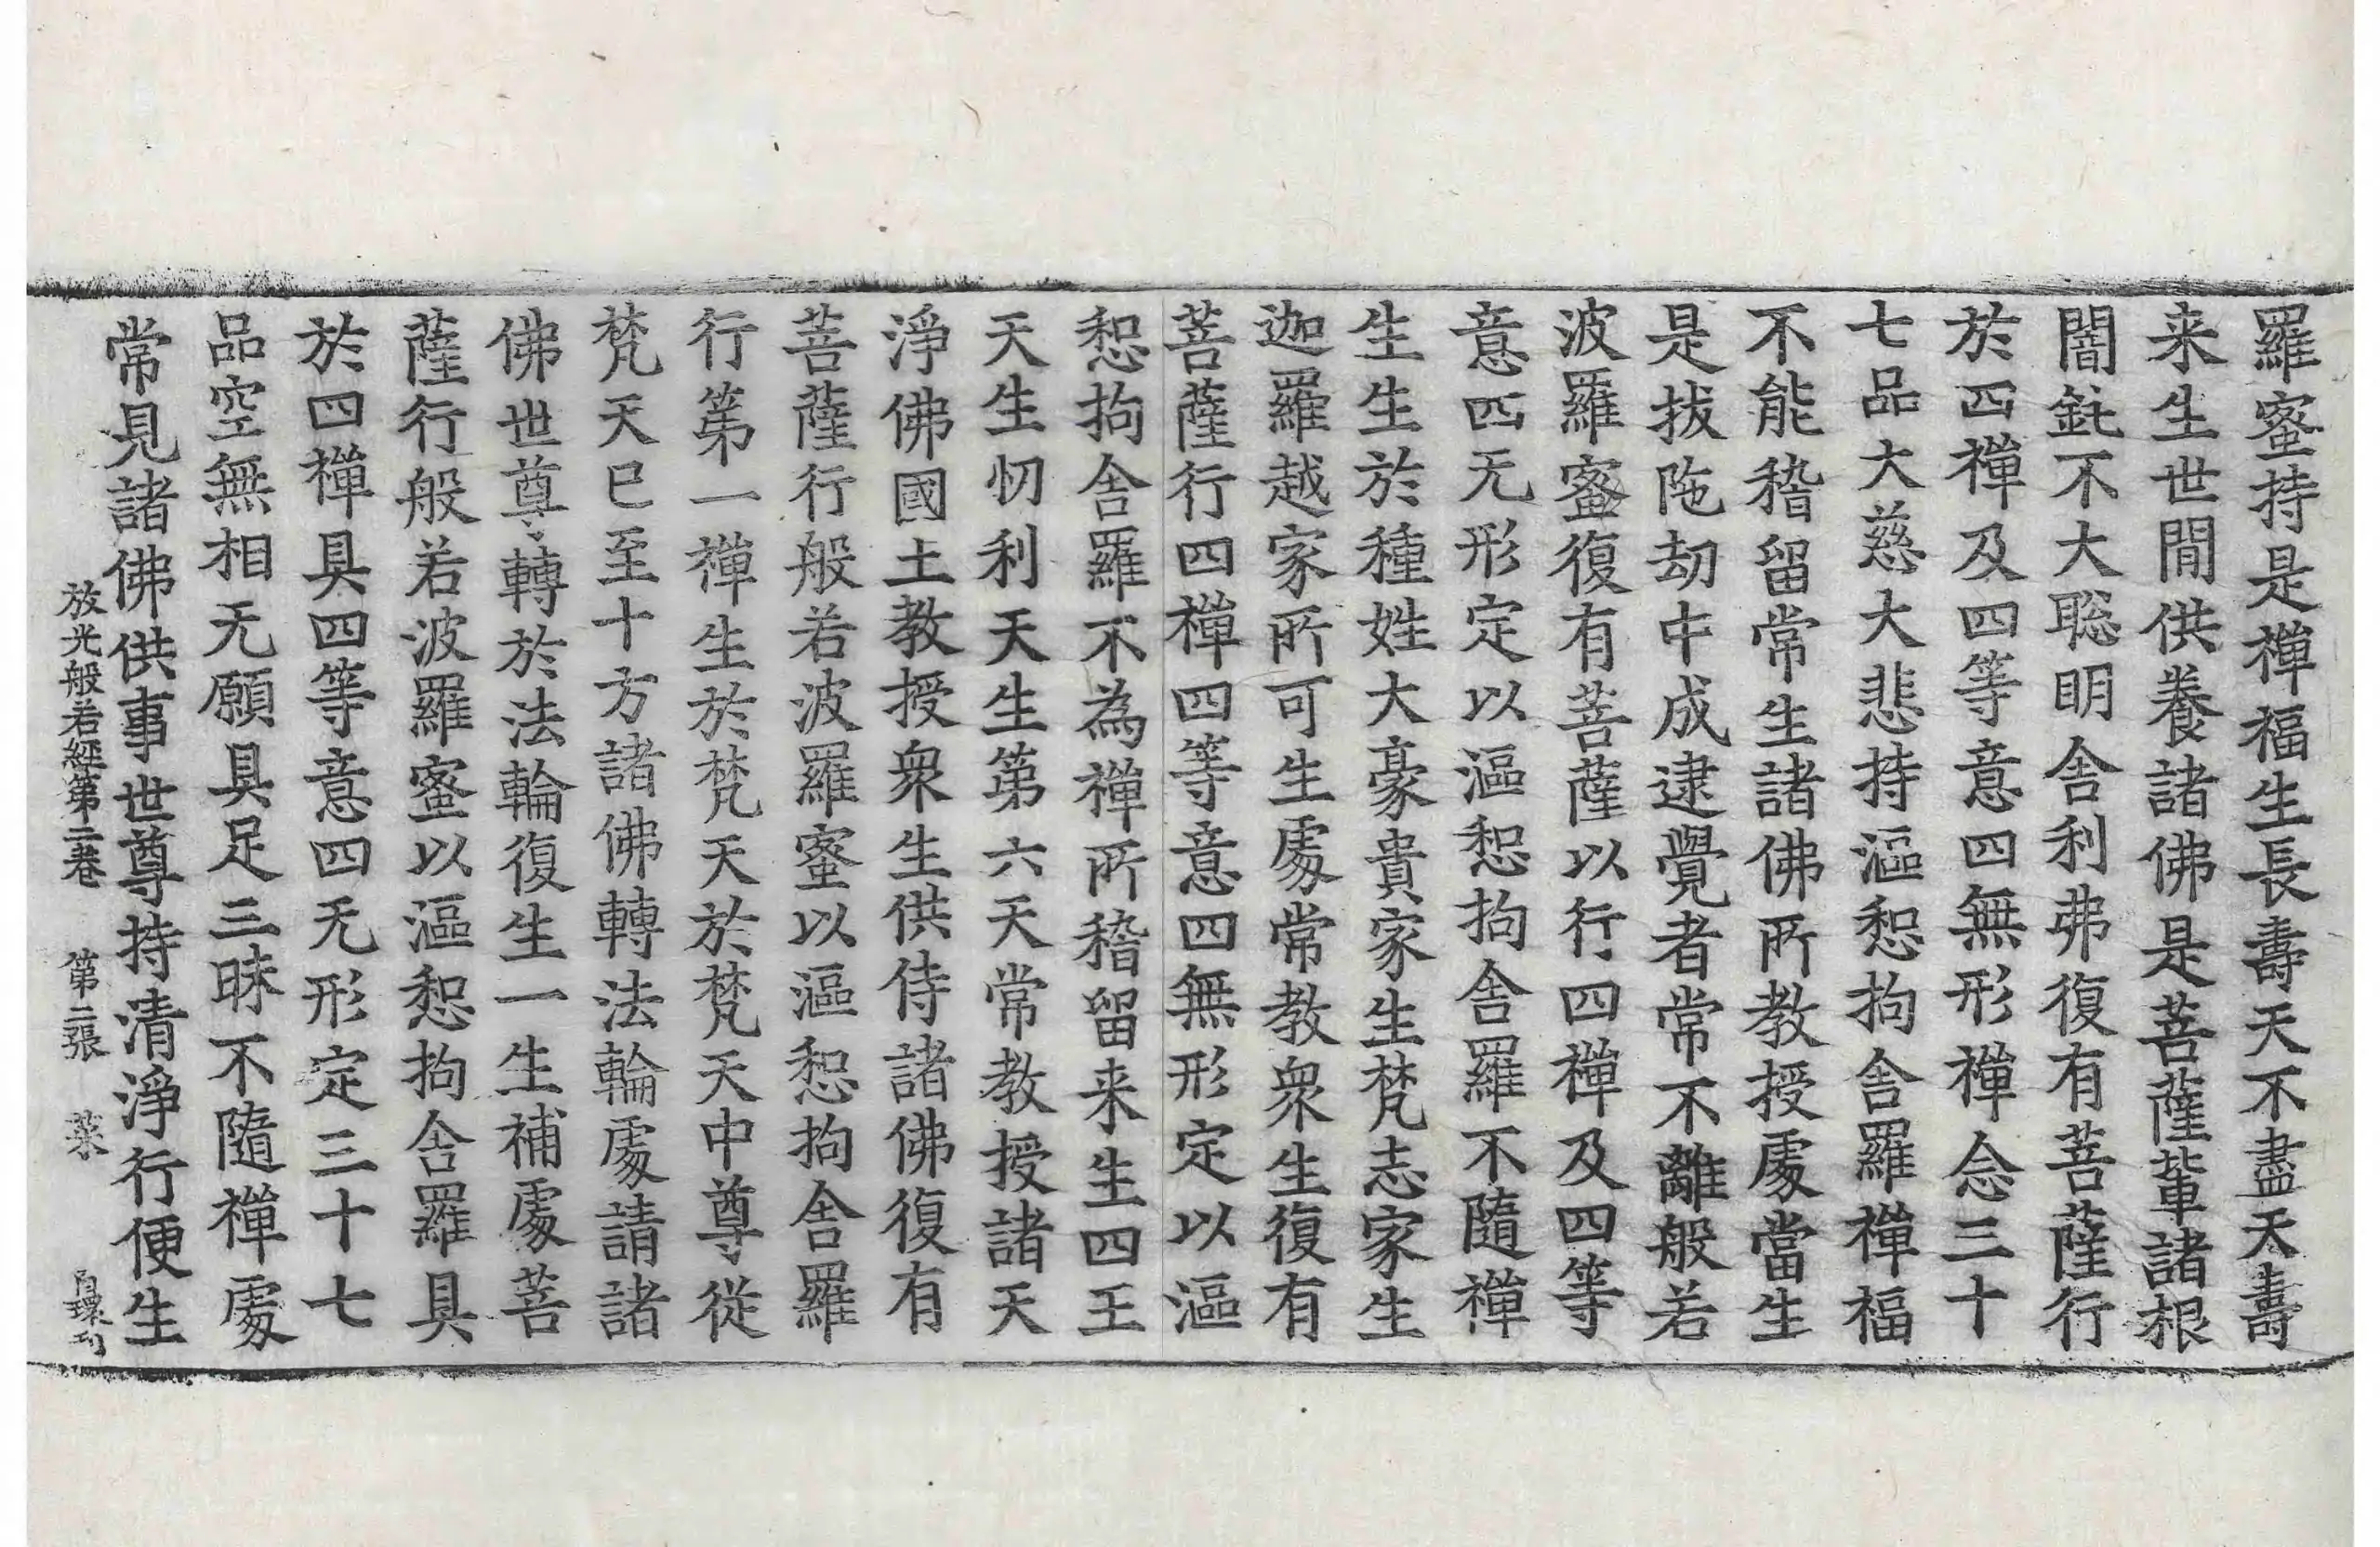 羅蜜持是禪福生長壽天不盡天壽
来生世間供養諸佛是菩薩輩諸根
闇鈍不大聡明舎利弗復有菩薩行
於四禪及四等意四無形禪念三十
七品大慈大悲持漚惒拘舎羅禪福
不能稽留常生諸佛所教授處當生
是拔陁劫中成逮覺者常不離般若
波羅蜜復有菩薩以行四禪及四等
意四无形定以漚惒拘舎羅不隨禪
生生於種姓大豪貴家生梵志家生
迦羅越家所可生處常教衆生復有
菩薩行四禪四等意四無形定以漚
惒拘舎羅不為禪所稽留来生四王
天生忉利天生第六天常教授諸天
淨佛國土教授衆生供侍諸佛復有
菩薩行般若波羅蜜以漚惒拘舎羅
行第一禪生於梵天於梵天中尊從
梵天已至十方諸佛轉法輪處請諸
佛世尊轉於法輪復生一生補處菩
薩行般若波羅蜜以漚惒拘舎羅具
於四禪具四等意四无形定三十七
品空無相无願具足三昧不隨禪處
常見諸佛供事世尊持清淨行便生
放光般若經第二卷　第二張　菜